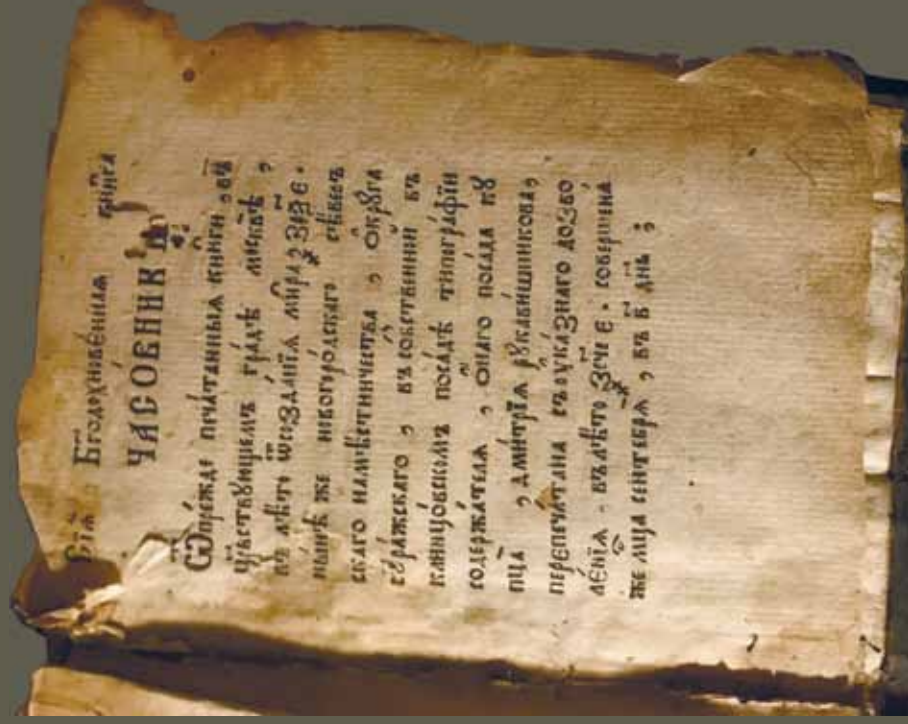 Сїѧ̀ Бг҃одх҃нове́ннаѧ кни́га
ЧАСО́ВНИК
Ѿпре́жде печа́танныѧ кни́ги , въ
црⷭ҇твꙋющемъ гра́дѣ москвѣ̀ ,
в лѣ́то ѿ созда́нїѧ ми́ра
ны́нѣ же новогоро́дскаго
скаго намѣ́стничества , о́крꙋга
сꙋра́жскаго , въ со́бственнѣй въ
клинцо́вскомъ поса́дѣ типогра́фїи
содержа́телѧ , о́наго поса́да кꙋ
пца̀ , дми́трїѧ рꙋкави́шникова ,
перепеча́тана съ ꙋка́знаго дозво
ле́нїѧ . в лѣ́то ҂зс҃че . соверше́на
же мц҃а сентебрѧ̀ , въ в҃ дн҃ь ;